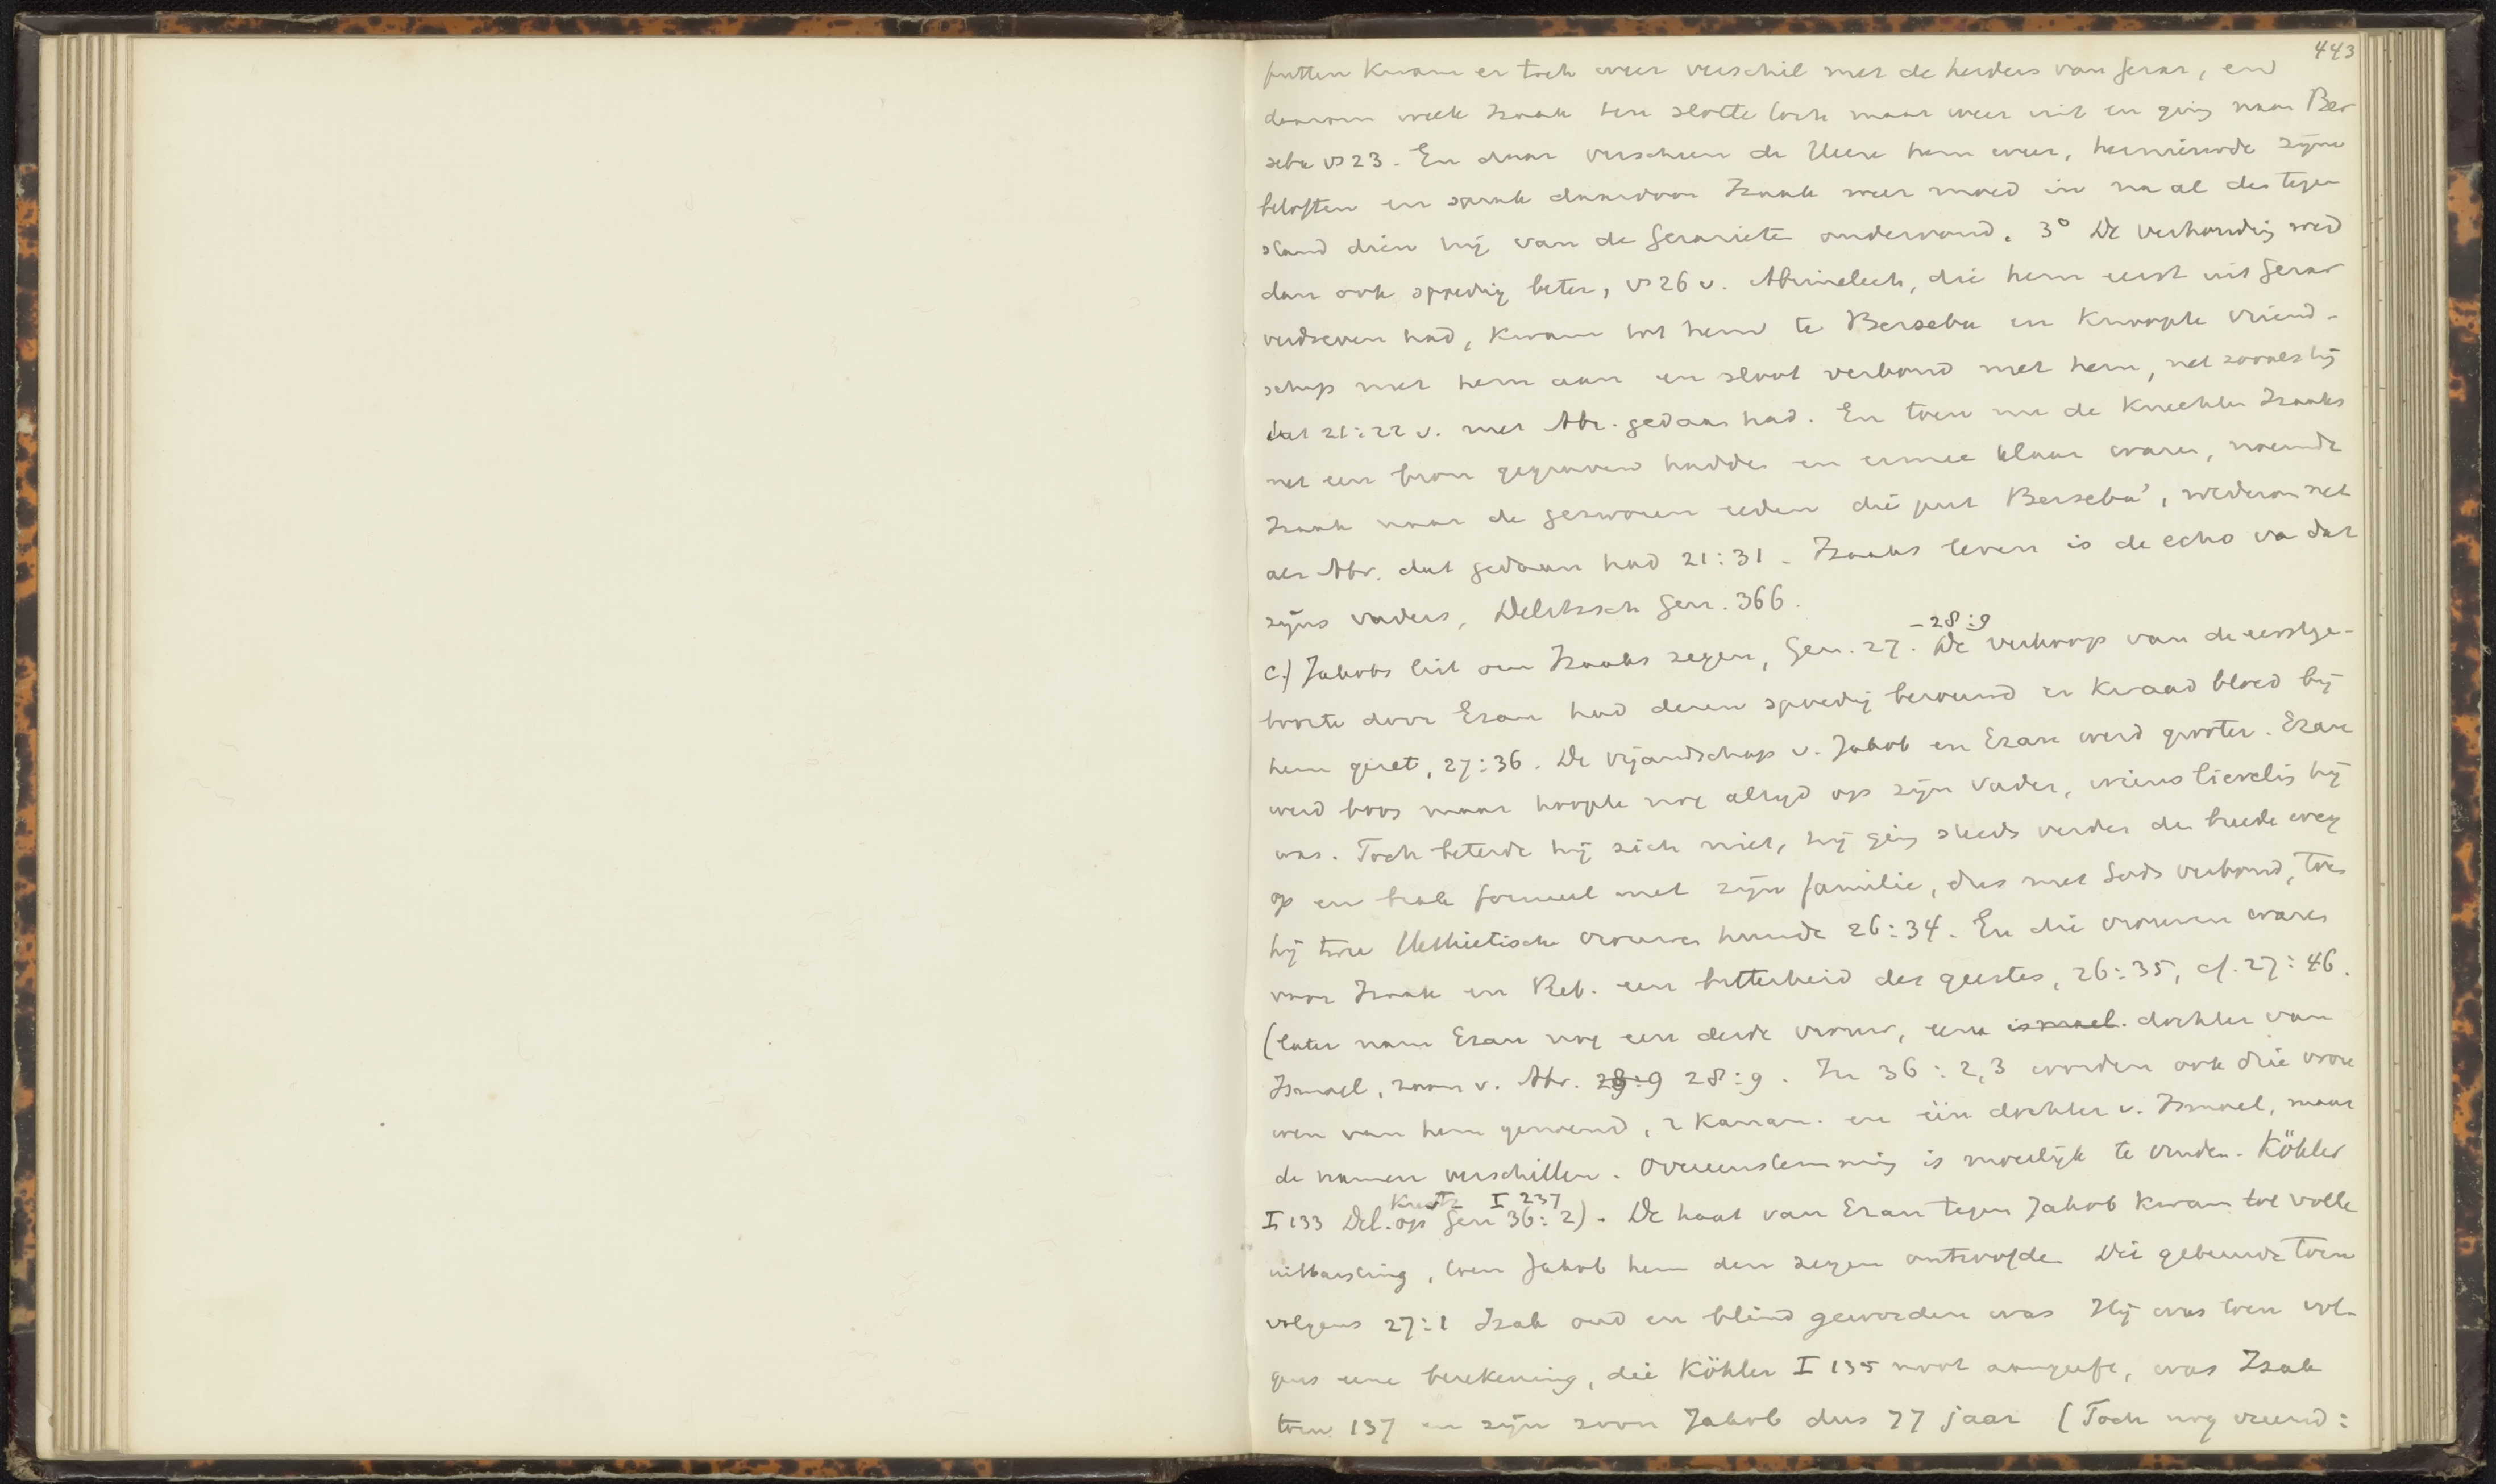 443
putten kwam er toch weer verschil met de herders van Gerar, en
daarom week Izaak ten slotte toch maar weer uit en ging naar Ber
seba vs 23. En daar verscheen de Heere hem weer, hernieuwde zijne
beloften en sprak daardoor Izaak weer moed in na al den tegen
stand dien hij van de Gerariete ondervond. 3° De verhouding werd
dan ook spoedig beter, vs 26 v. Abimelech, die hem eerst uit Gerar
verdreven had, kwam tot hem te Berseba en knoopte vriend-
schap met hem aan en sloot verbond met hem, net zooals hij
dat 21:22 v. met Abr. gedaan had. En toen nu de knechten Izaaks
net een bron gegraven hadden en ermee klaar waren, noemde
Izaak naar de gezworen eeden die put Berseba', wederom net
als Abr. dat gedaan had 21:31. Izaaks leven is de echo va dat
zijns vaders, Delitzsch Gen. 366.
c.) Jakobs list om Izaaks zegen, Gen. 27. -28:9 De verkoop van de eerstge-
boorte door Ezau had dezen spoedig berouwd en kwaad bloed bij
hem gezet, 27:36. De vijandschap v. Jakob en Ezau werd grooter. Ezau
werd boos maar hoopte nog altijd op zijn vader, wiens lieveling hij
was. Toch beterde hij zich niet, hij ging steeds verder den breede weg
op en brak formeel met zijn familie, dus met Gods verbond, toen
hij twee Hethietische vrouwen huwde 26:34. En die vrouwen waren
voor Izaak en Reb. een bitterheid des geestes, 26:35, cf. 27:46.
(later nam Ezau nog een derde vrouw, eene ismael. dochter van
Ismael, zoon v. Abr. 29:9 28:9. In 36:2,3 worden ook drie vrou
wen van hem genoemd, 2 Kanaan. en één dochter v. Ismael, maar
de namen verschillen. Overeenstemming is moeilijk te vinden. Köhler
I 133 Del. op Gen 36:2) Kurtz I 237. De haat van Ezau tegen Jakob kwam tot volle
uitbarsting, toen Jakob hem den zegen ontroofde. Dit gebeurde toen
volgens 27:1 Izak oud en blind geworden was Hij was toen vol-
gens eene berekening, die Köhler I 135 noot aangeeft, was Izak
toen 137 en zijn zoon Jakob dus 77 jaar (Toch nog vreemd: